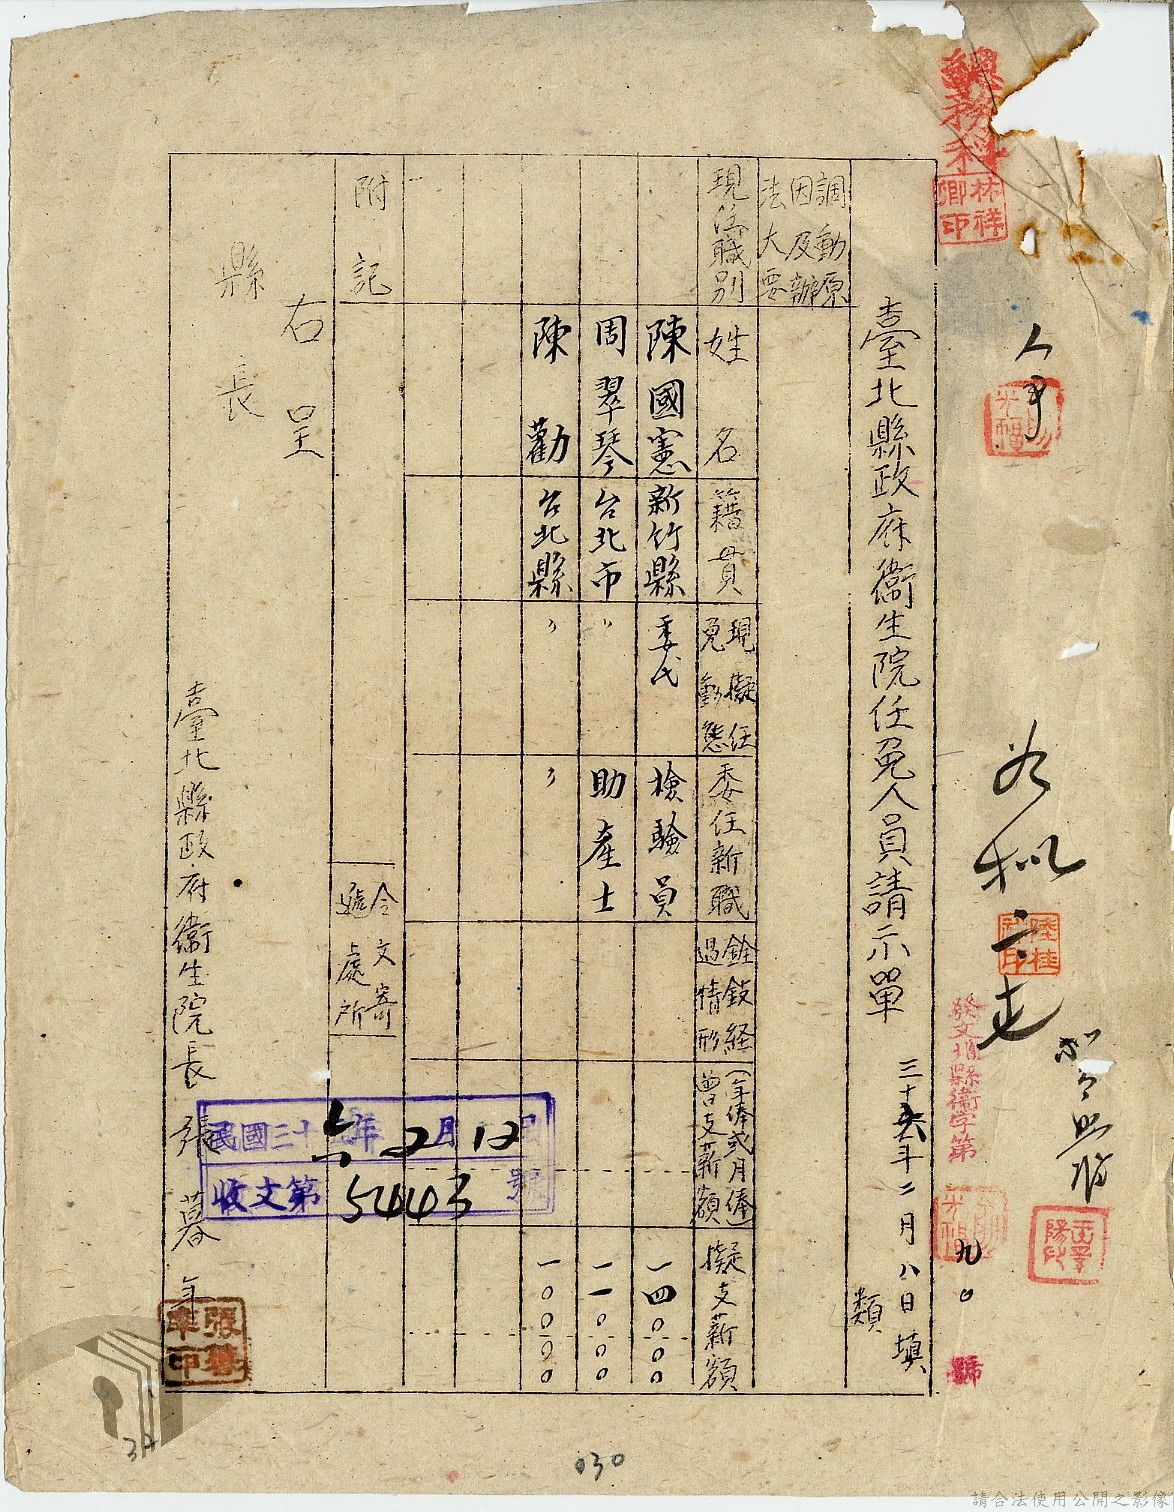 總務科
林祥卿印
人事
發文北縣衛字第
九〇
號
臺北縣政府衛生院任免人員請示單
三十六年二月八日填
類
調動原因及辦法大要
現任職別
姓名
籍貫
現擬任免動態
委任新職
銓敍経過情形
(年俸或月俸)曾支薪額
擬支薪額
陳國憲 新竹縣 委代 檢驗員 一四〇.〇〇
周翠琴 台北市 〃 助產士 一一〇.〇〇
陳勸 台北縣 〃 〃 一〇〇.〇〇
附記
令文寄遞處所
右呈
縣長
臺北縣政府衛生院長 張暮年
張暮年印
民國三十六年2月12日
收文第5443號
030
請合法使用公開之影像